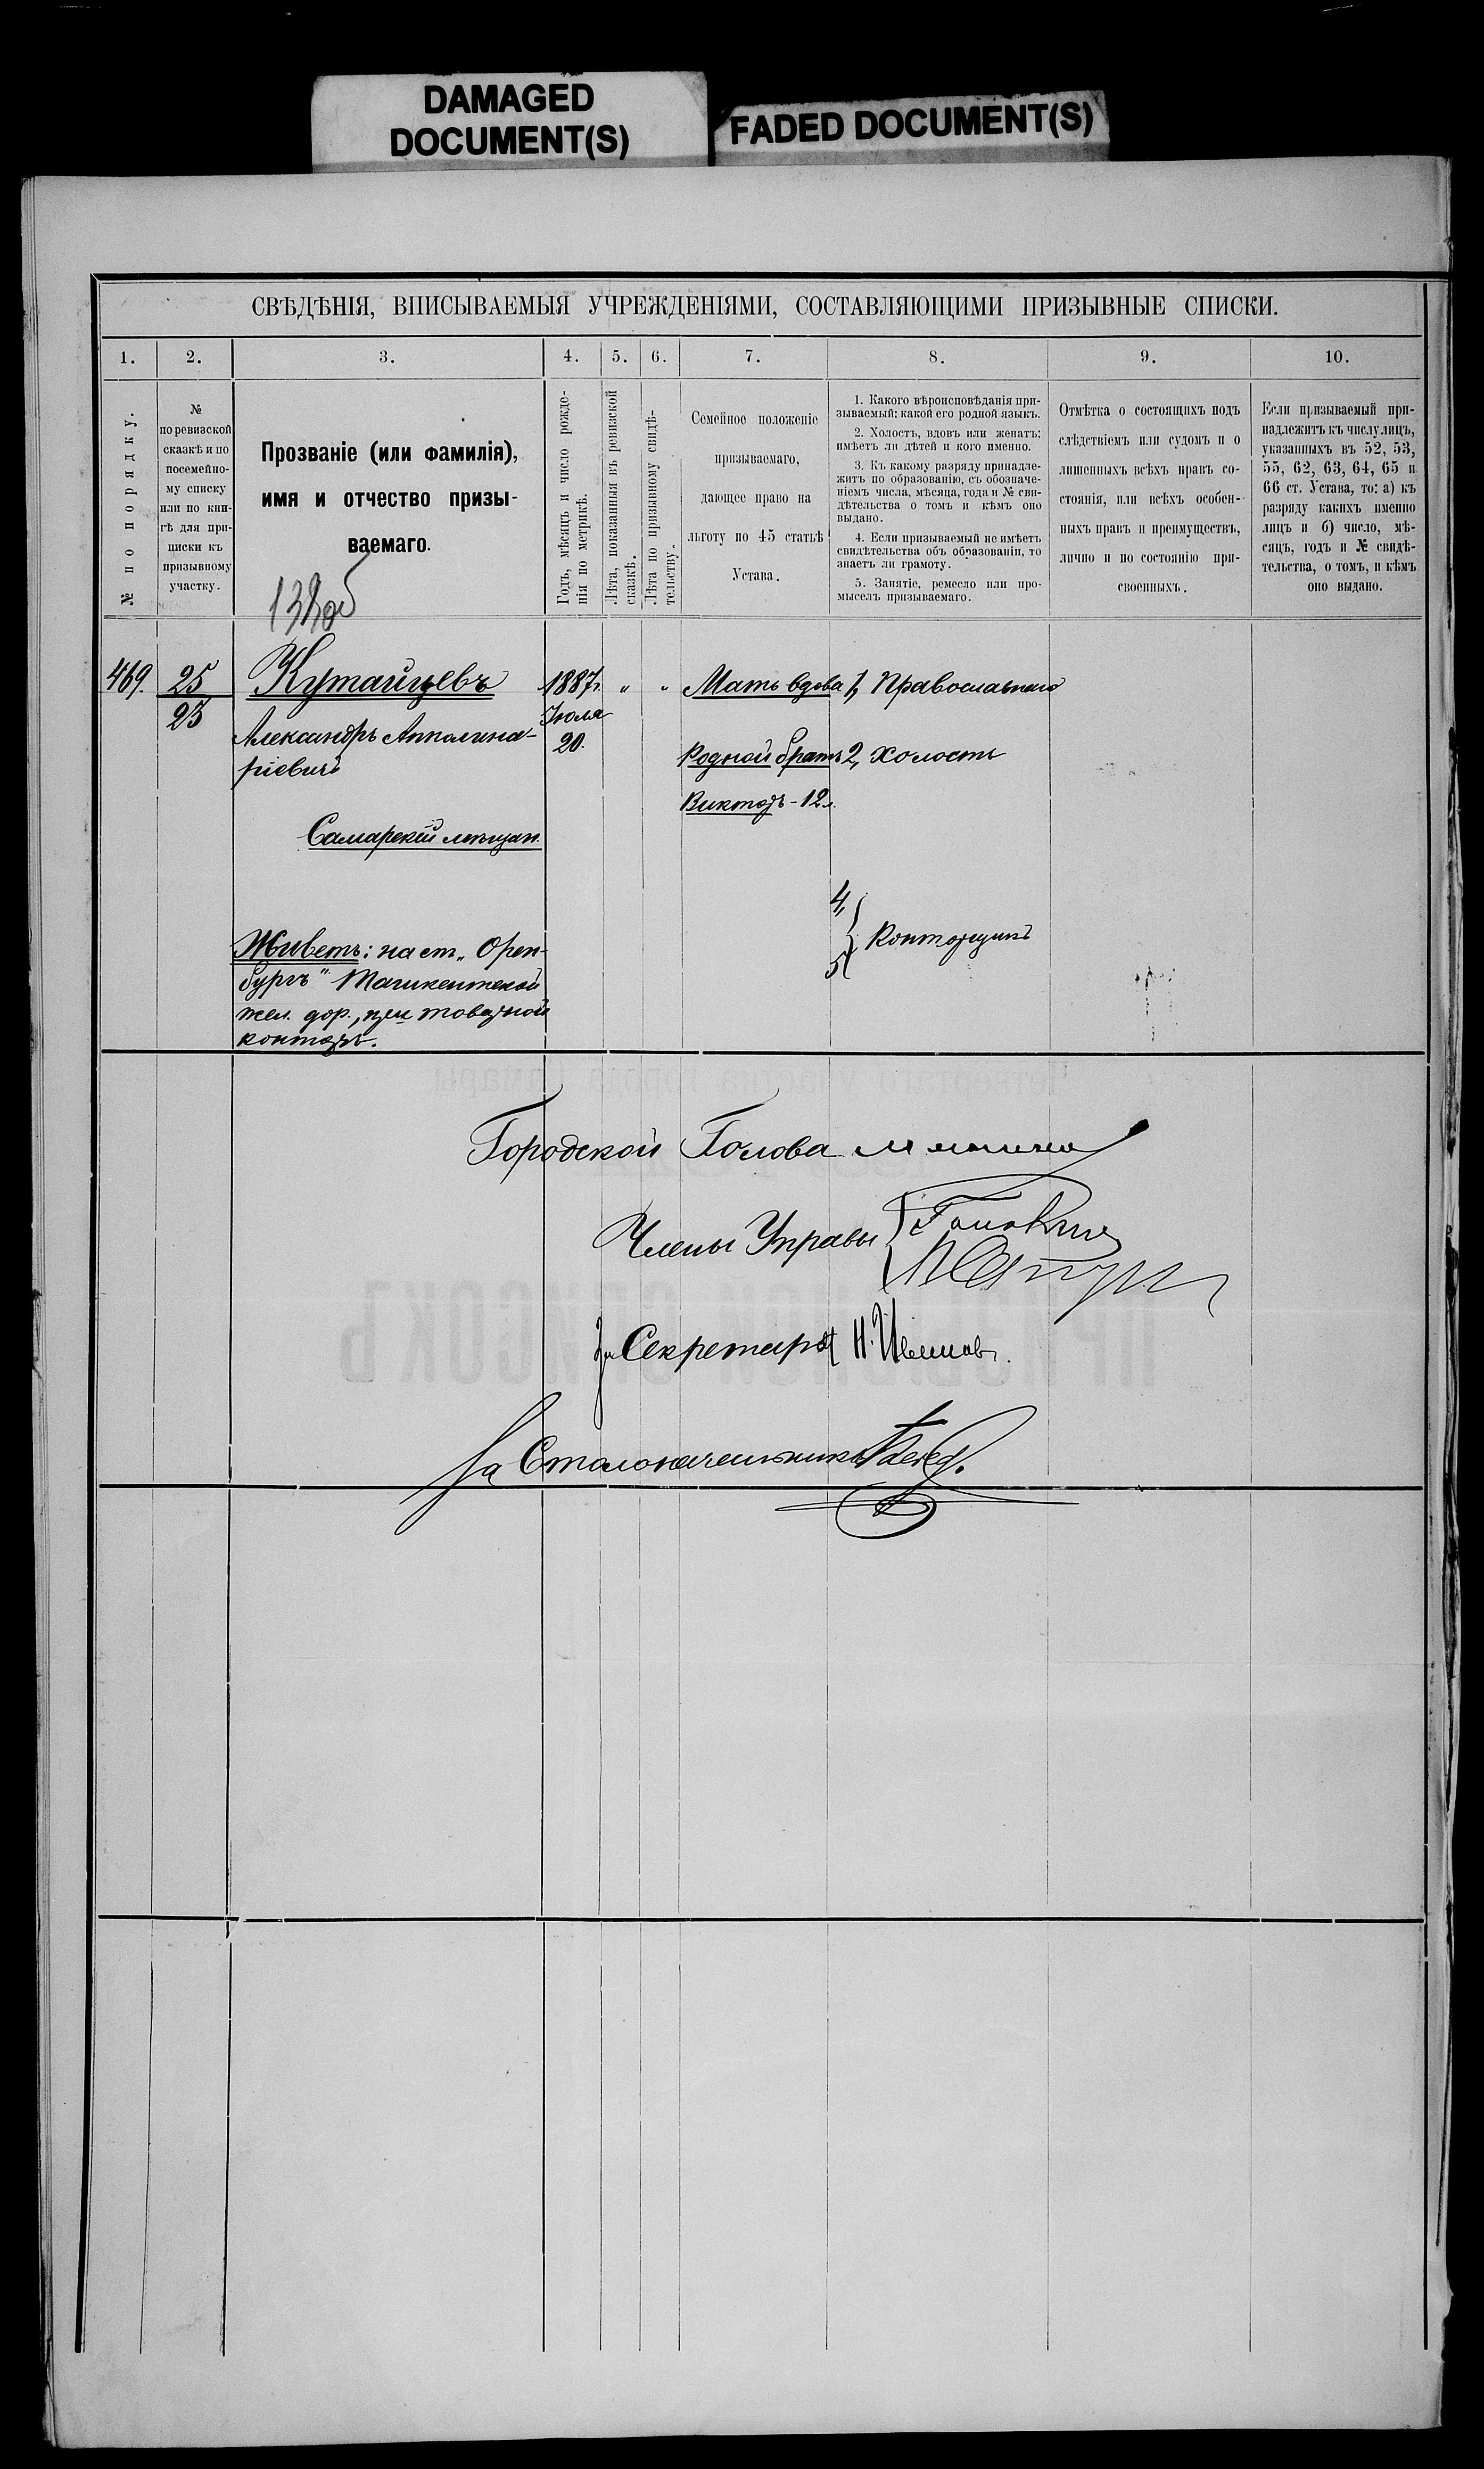 DAMAGED
DOCUMENT(S)
FADED DOCUMENT(S)
СВѢДѢНІЯ, ВПИСЫВАЕМЫЯ УЧРЕЖДЕНІЯМИ, СОСТАВЛЯЮЩИМИ ПРИЗЫВНЫЕ СПИСКИ.
1. 2. 3. 4. 5. 6. 7. 8. 9. 10.
№ по порядку.
№
по ревизской
сказкѣ и по
посемейно-
му списку
или по кни-
гѣ для при-
писки къ
призывному
участку.
Прозваніе (или фамилія),
имя и отчество призы-
ваемаго.
Годъ, мѣсяцъ и число рожде-
нія по метрикѣ.
Лѣта, показанныя въ ревизской
сказкѣ.
Лѣта по призывному свидѣ-
тельству.
Семейное положеніе
призываемаго,
дающее право на
льготу по 45 статьѣ
Устава.
1. Какого вѣроисповѣданія при-
зываемый; какой его родной языкъ.
2. Холостъ, вдовъ или женатъ;
имѣетъ ли дѣтей и кого именно.
3. Къ какому разряду принадле-
житъ по образованію, съ обозначе-
ніемъ числа, мѣсяца, года и № сви-
дѣтельства о томъ и кѣмъ оно
выдано.
4. Если призываемый не имѣетъ
свидѣтельства объ образованіи, то
знаетъ ли грамоту.
5. Занятіе, ремесло или про-
мыселъ призываемаго.
Отмѣтка о состоящихъ подъ
слѣдствіемъ или судомъ и о
лишенныхъ всѣхъ правъ со-
стоянія, или всѣхъ особен-
ныхъ правъ и преимуществъ,
лично и по состоянію при-
своенныхъ.
Если призываемый при-
надлежитъ къ числу лицъ,
указанныхъ въ 52, 53,
55, 62, 63, 64, 65 и
66 ст. Устава, то: а) къ
разряду какихъ именно
лицъ и б) число, мѣ-
сяцъ, годъ и № свидѣ-
тельства, о томъ, и кѣмъ
оно выдано.
469. 25 Кутайцевъ 1887г. " " Мать вдова 1, Православнаго
23 Александръ Апполина- Іюля
ріевичъ 20. Родной братъ 2, Холостъ
Викторъ - 12 л.
Самарскій мѣщан.
4,
Живетъ: на ст. „Орен- Конторщикъ
бургъ" Ташкентской 5,
жел. дор., при товарной
конторѣ.
Городской Голова
Члены Управы
За Секретаря Н.
За Столоначальника